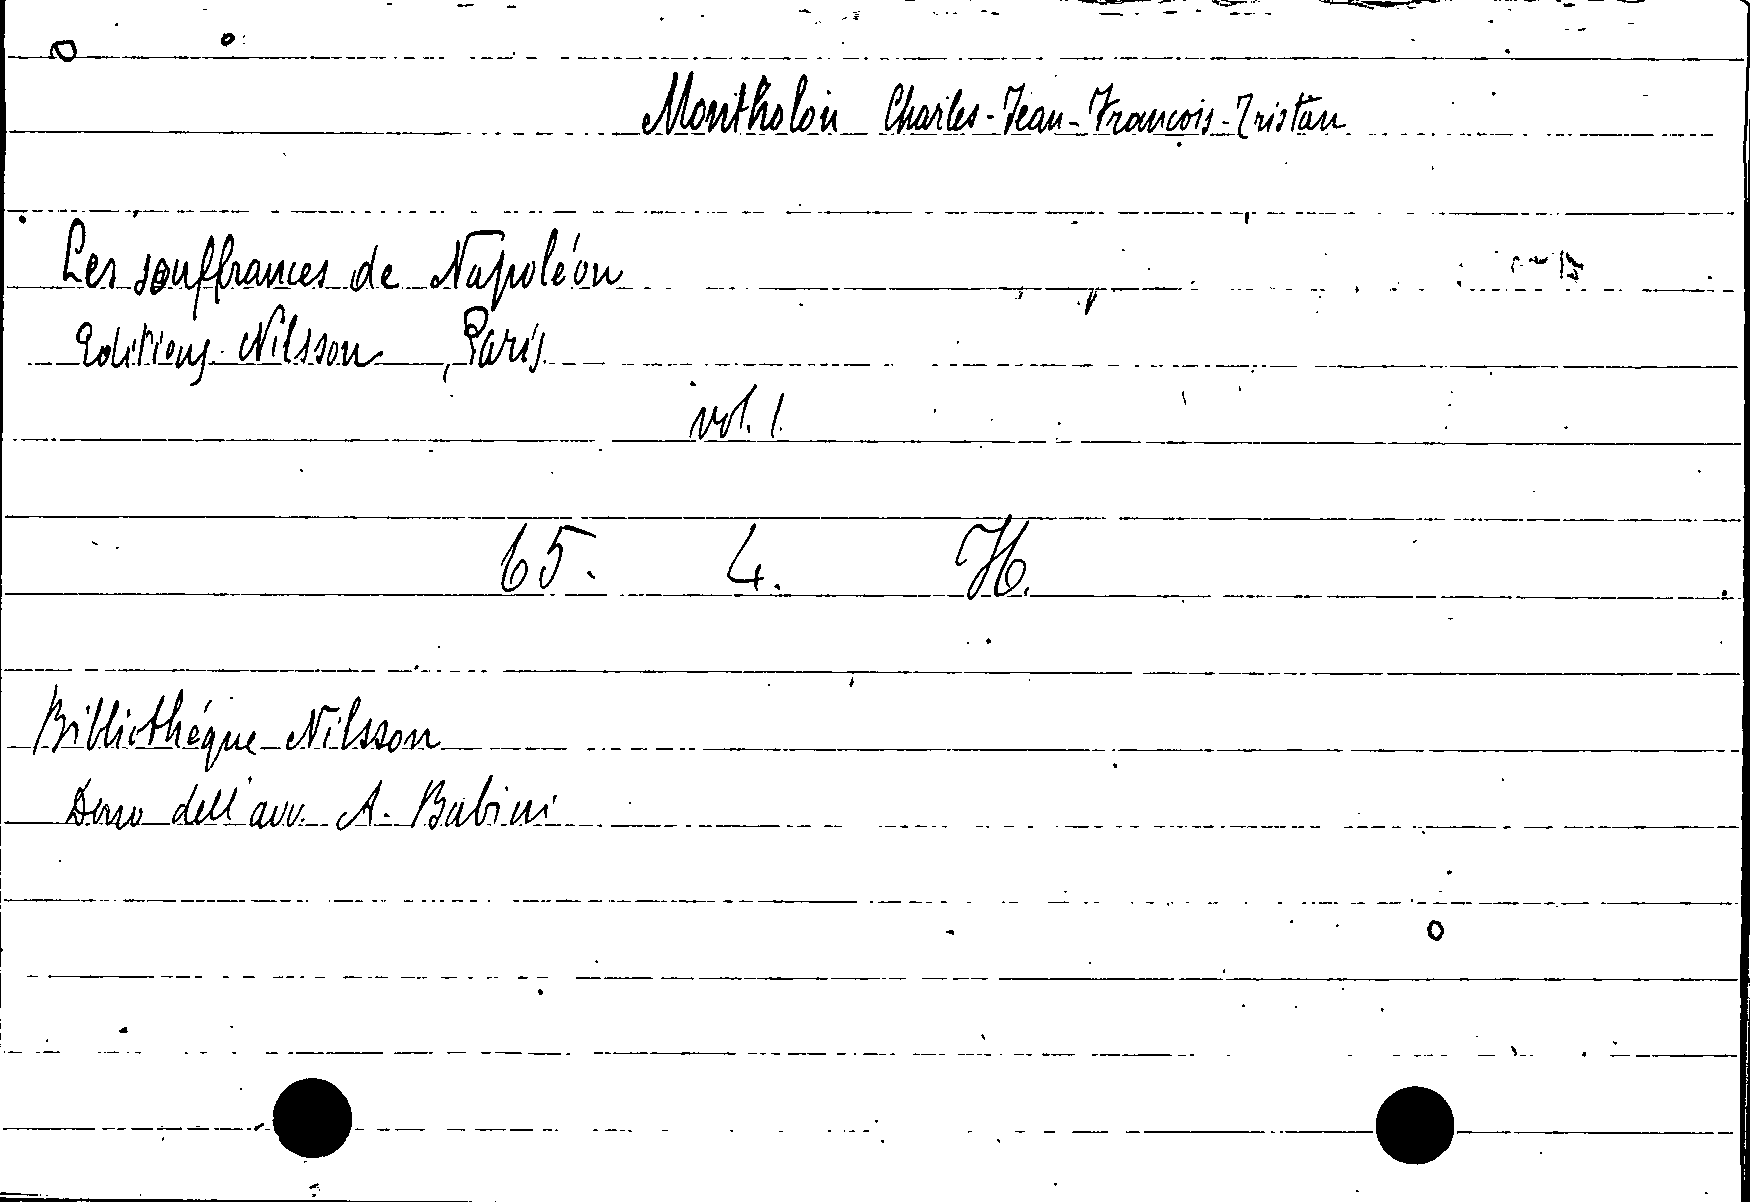 Montholon Charles-Jean-François-Tristan
Les souffrances de Napoléon
Editions Nilsson, Paris
vol. 1.
65. 4. H.
Bibliothéque Nilsson
Dono dell'avv. A. Babini